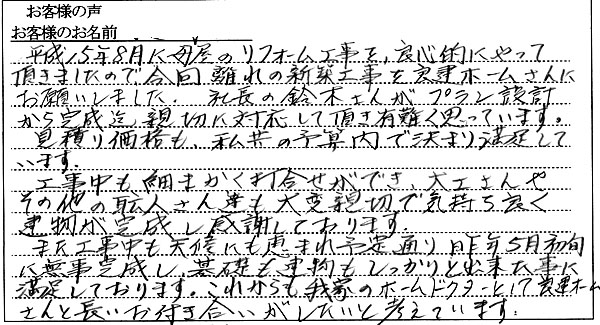 お客様の声
お客様のお名前
平成15年8月に母屋のリフォーム工事を、良心的にやって
頂きましたので今回離れの新築工事を東建ホームさんに
お願いしました。社長の鈴木さんがプラン設計
から完成迄親切に対応して頂き有難く思っています。
見積り価格も、私共の予算内で決まり満足して
います。
工事中も細まかく打合せができ、大工さんや
その他の職人さん達も大変親切で気持ち良く
建物が完成し感謝しております。
また工事中も天候にも恵まれ予定通り昨年5月初旬
に無事完成し、基礎も建物もしっかりと出来た事に
満足しております。これからも我家のホームドクターとして東建ホーム
さんと長いお付き合いがしたいと考えています。